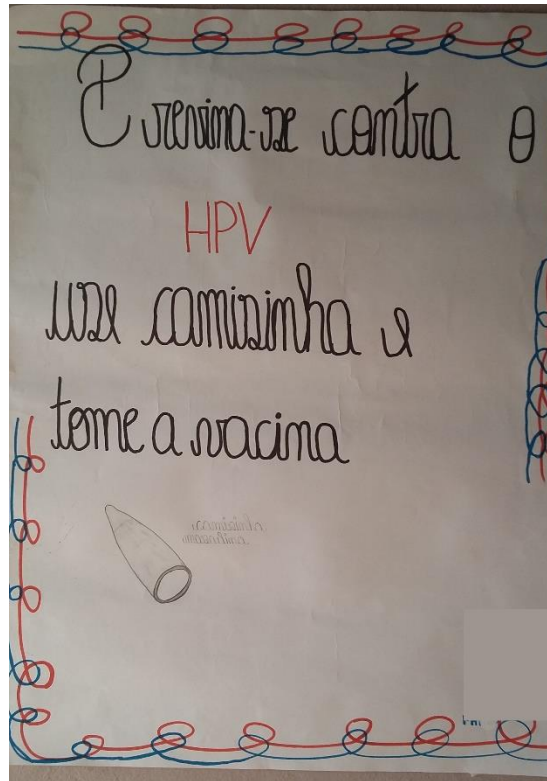 Previna-se contra o
HPV
use camisinha e
tome a vacina